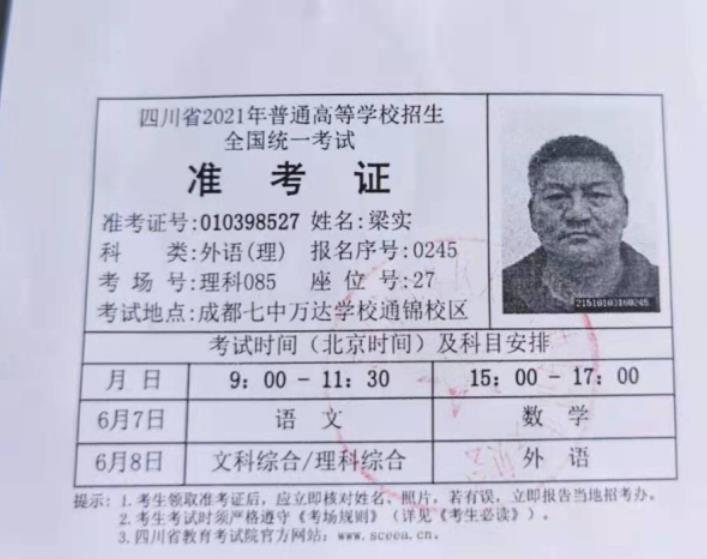 四川省2021年普通高等学校招生
全国统一考试
准 考 证
准考证号:010398527 姓名:梁实
科 类:外语(理) 报名序号:0245
考 场 号:理科085 座 位 号:27
考试地点:成都七中万达学校通锦校区
考试时间（北京时间）及科目安排
月 日 9：00 - 11：30 15：00 - 17：00
6月7日 语 文 数 学
6月8日 文科综合/理科综合 外 语
提示：1.考生领取准考证后，应立即核对姓名、照片，若有误，立即报告当地招考办。
2.考生考试时须严格遵守《考场规则》（详见《考生必读》）。
3.四川省教育考试院官方网站：www.sceea.cn。